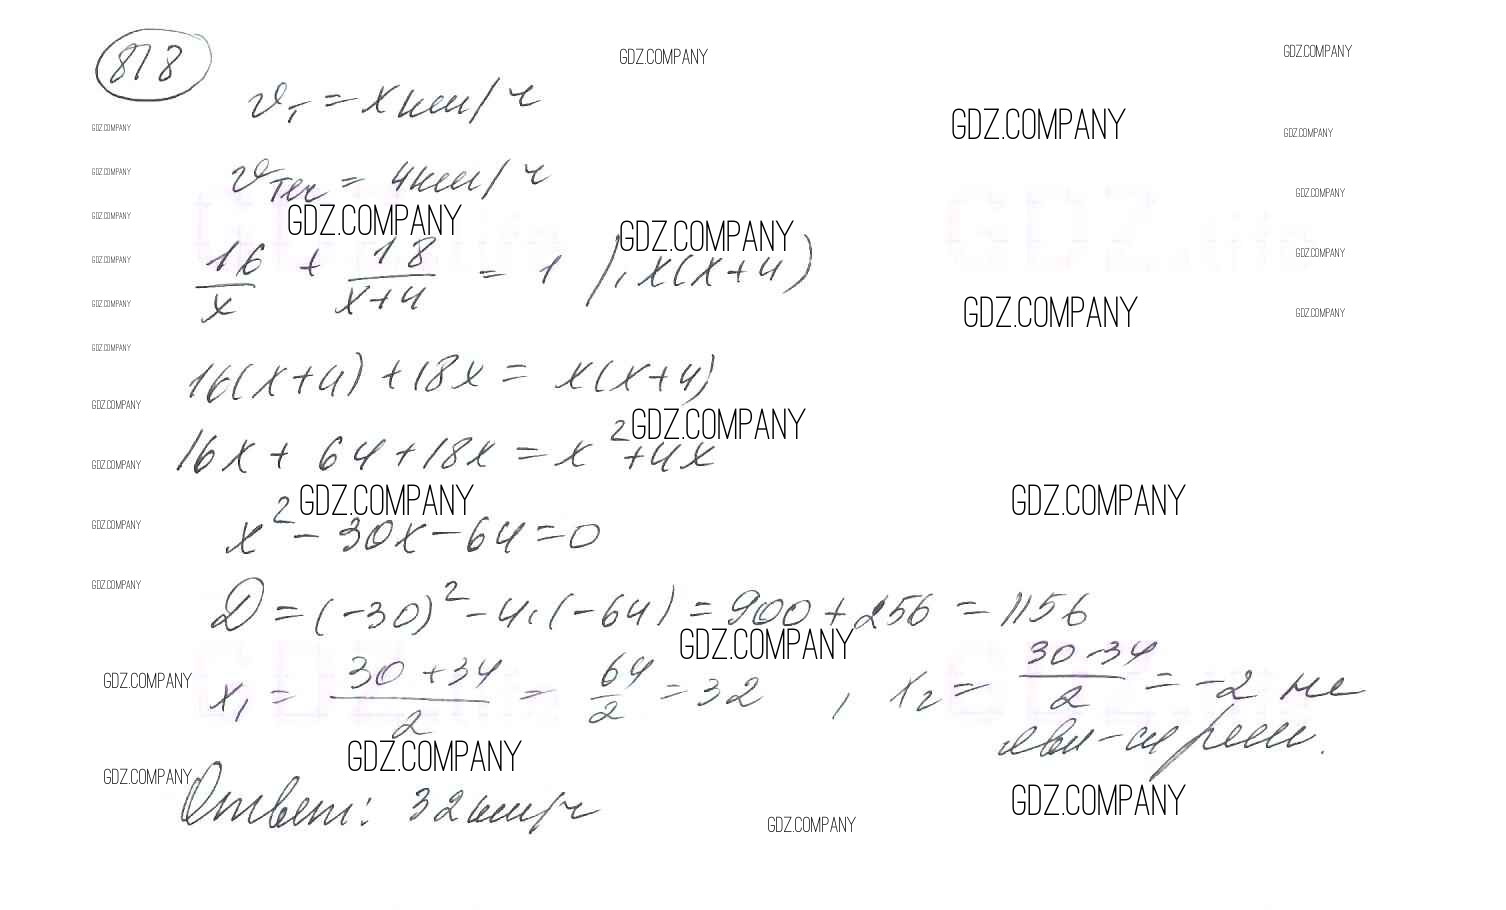 878
GDZ.COMPANY
GDZ.COMPANY
vт = x км/ч
GDZ.COMPANY
GDZ.COMPANY
GDZ.COMPANY
GDZ.COMPANY
vтеч = 4 км/ч
GDZ.COMPANY
GDZ.COMPANY
GDZ.COMPANY
GDZ.COMPANY
16/x + 18/(x+4) = 1 | · x(x+4)
GDZ.COMPANY
GDZ.COMPANY
GDZ.COMPANY
GDZ.COMPANY
GDZ.COMPANY
GDZ.COMPANY
16(x+4) + 18x = x(x+4)
GDZ.COMPANY
GDZ.COMPANY
16x + 64 + 18x = x² + 4x
GDZ.COMPANY
GDZ.COMPANY
GDZ.COMPANY
x² - 30x - 64 = 0
GDZ.COMPANY
GDZ.COMPANY
D = (-30)² - 4·(-64) = 900 + 256 = 1156
GDZ.COMPANY
GDZ.COMPANY
x₁ = (30 + 34)/2 = 64/2 = 32 , x₂ = (30 - 34)/2 = -2 не
явл-ся реш.
GDZ.COMPANY
GDZ.COMPANY
Ответ: 32 км/ч
GDZ.COMPANY
GDZ.COMPANY